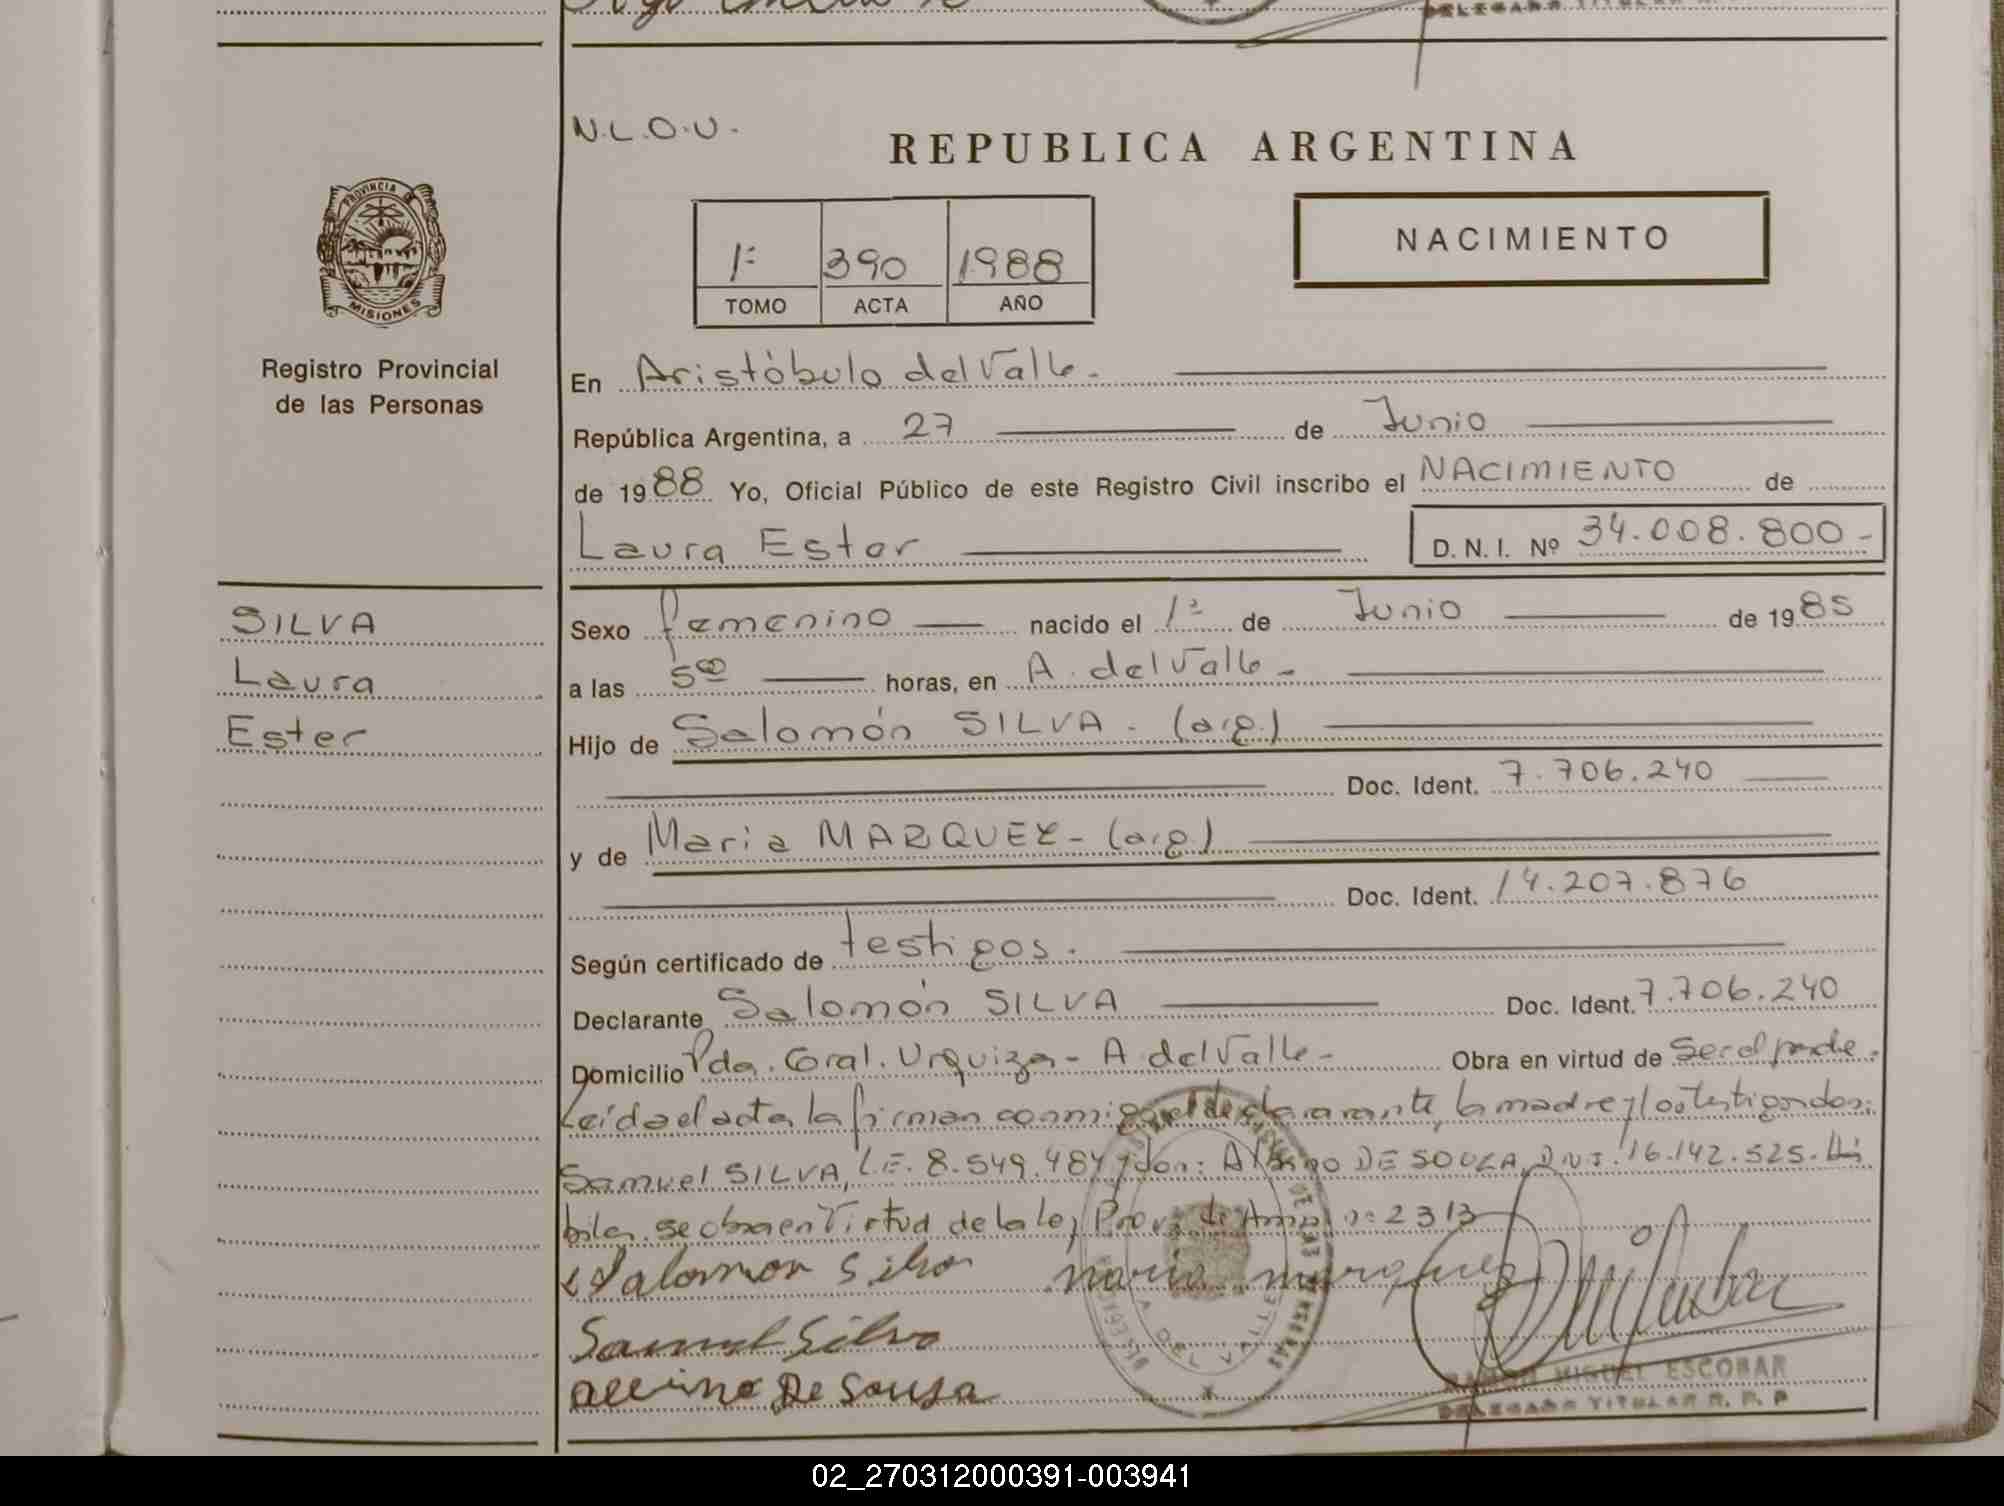 DELEGADO TITULAR R.
N.L.O.U.
REPUBLICA ARGENTINA
PROVINCIA DE
MISIONES
Registro Provincial
de las Personas
1º 390 1988
TOMO ACTA AÑO
NACIMIENTO
En Aristóbulo del Valle.
República Argentina, a 27 de Junio
de 1988 Yo, Oficial Público de este Registro Civil inscribo el NACIMIENTO de
Laura Ester D. N. I. Nº 34.008.800-
SILVA
Laura
Ester
Sexo femenino nacido el 1º de Junio de 1985
a las 5 00 horas, en A. del Valle -
Hijo de Salomón SILVA. (arg.)
Doc. Ident. 7.706.240
y de Maria MARQUEZ - (arg.)
Doc. Ident. 14.207.876
Según certificado de testigos.
Declarante Salomón SILVA Doc. Ident. 7.706.240
Domicilio Pda. Gral. Urquiza - A. del Valle - Obra en virtud de ser el padre.
Leída el acta la firman conmigo el declarante, la madre y los testigos don:
Samuel SILVA, L.E. 8.549.484 y don: Albino DE SOUZA, D.N.I. 16.142.525. Há
biles. se obra en Virtud de la ley Prov. de nº 2313
Salomon Silva maria marquez
Samuel Silva
DE SOUSA
A. DEL VALLE
RAMON MIGUEL ESCOBAR
DELEGADO TITULAR R. P. P
02_270312000391-003941